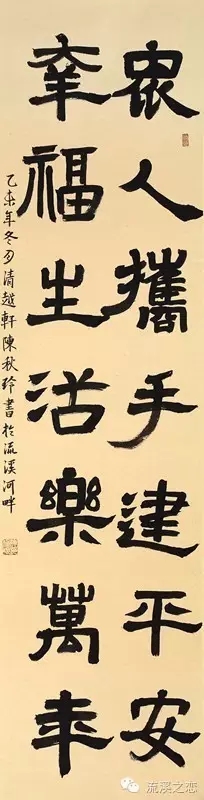 眾人攜手建平安
幸福生活樂萬年
乙未年冬月清趣軒陳秋玲書於流溪河畔
流溪之恋